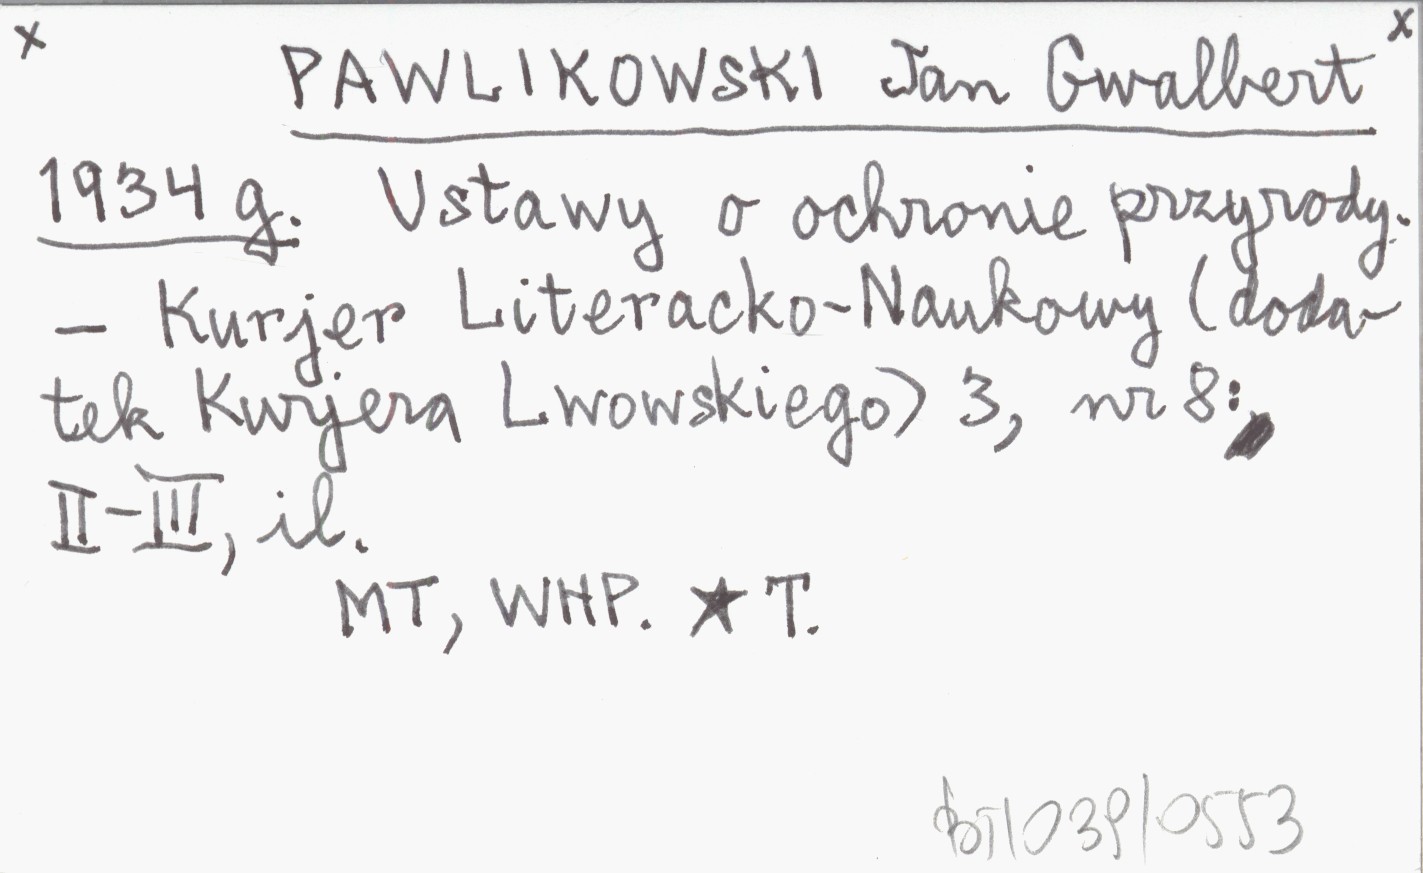 x x
PAWLIKOWSKI Jan Gwalbert
1934 g. Ustawy o ochronie przyrody.
— Kurjer Literacko-Naukowy (doda-
tek Kurjera Lwowskiego) 3, nr 8:
II-III, il.
MT, WHP. ★ T.
BT/039/0553